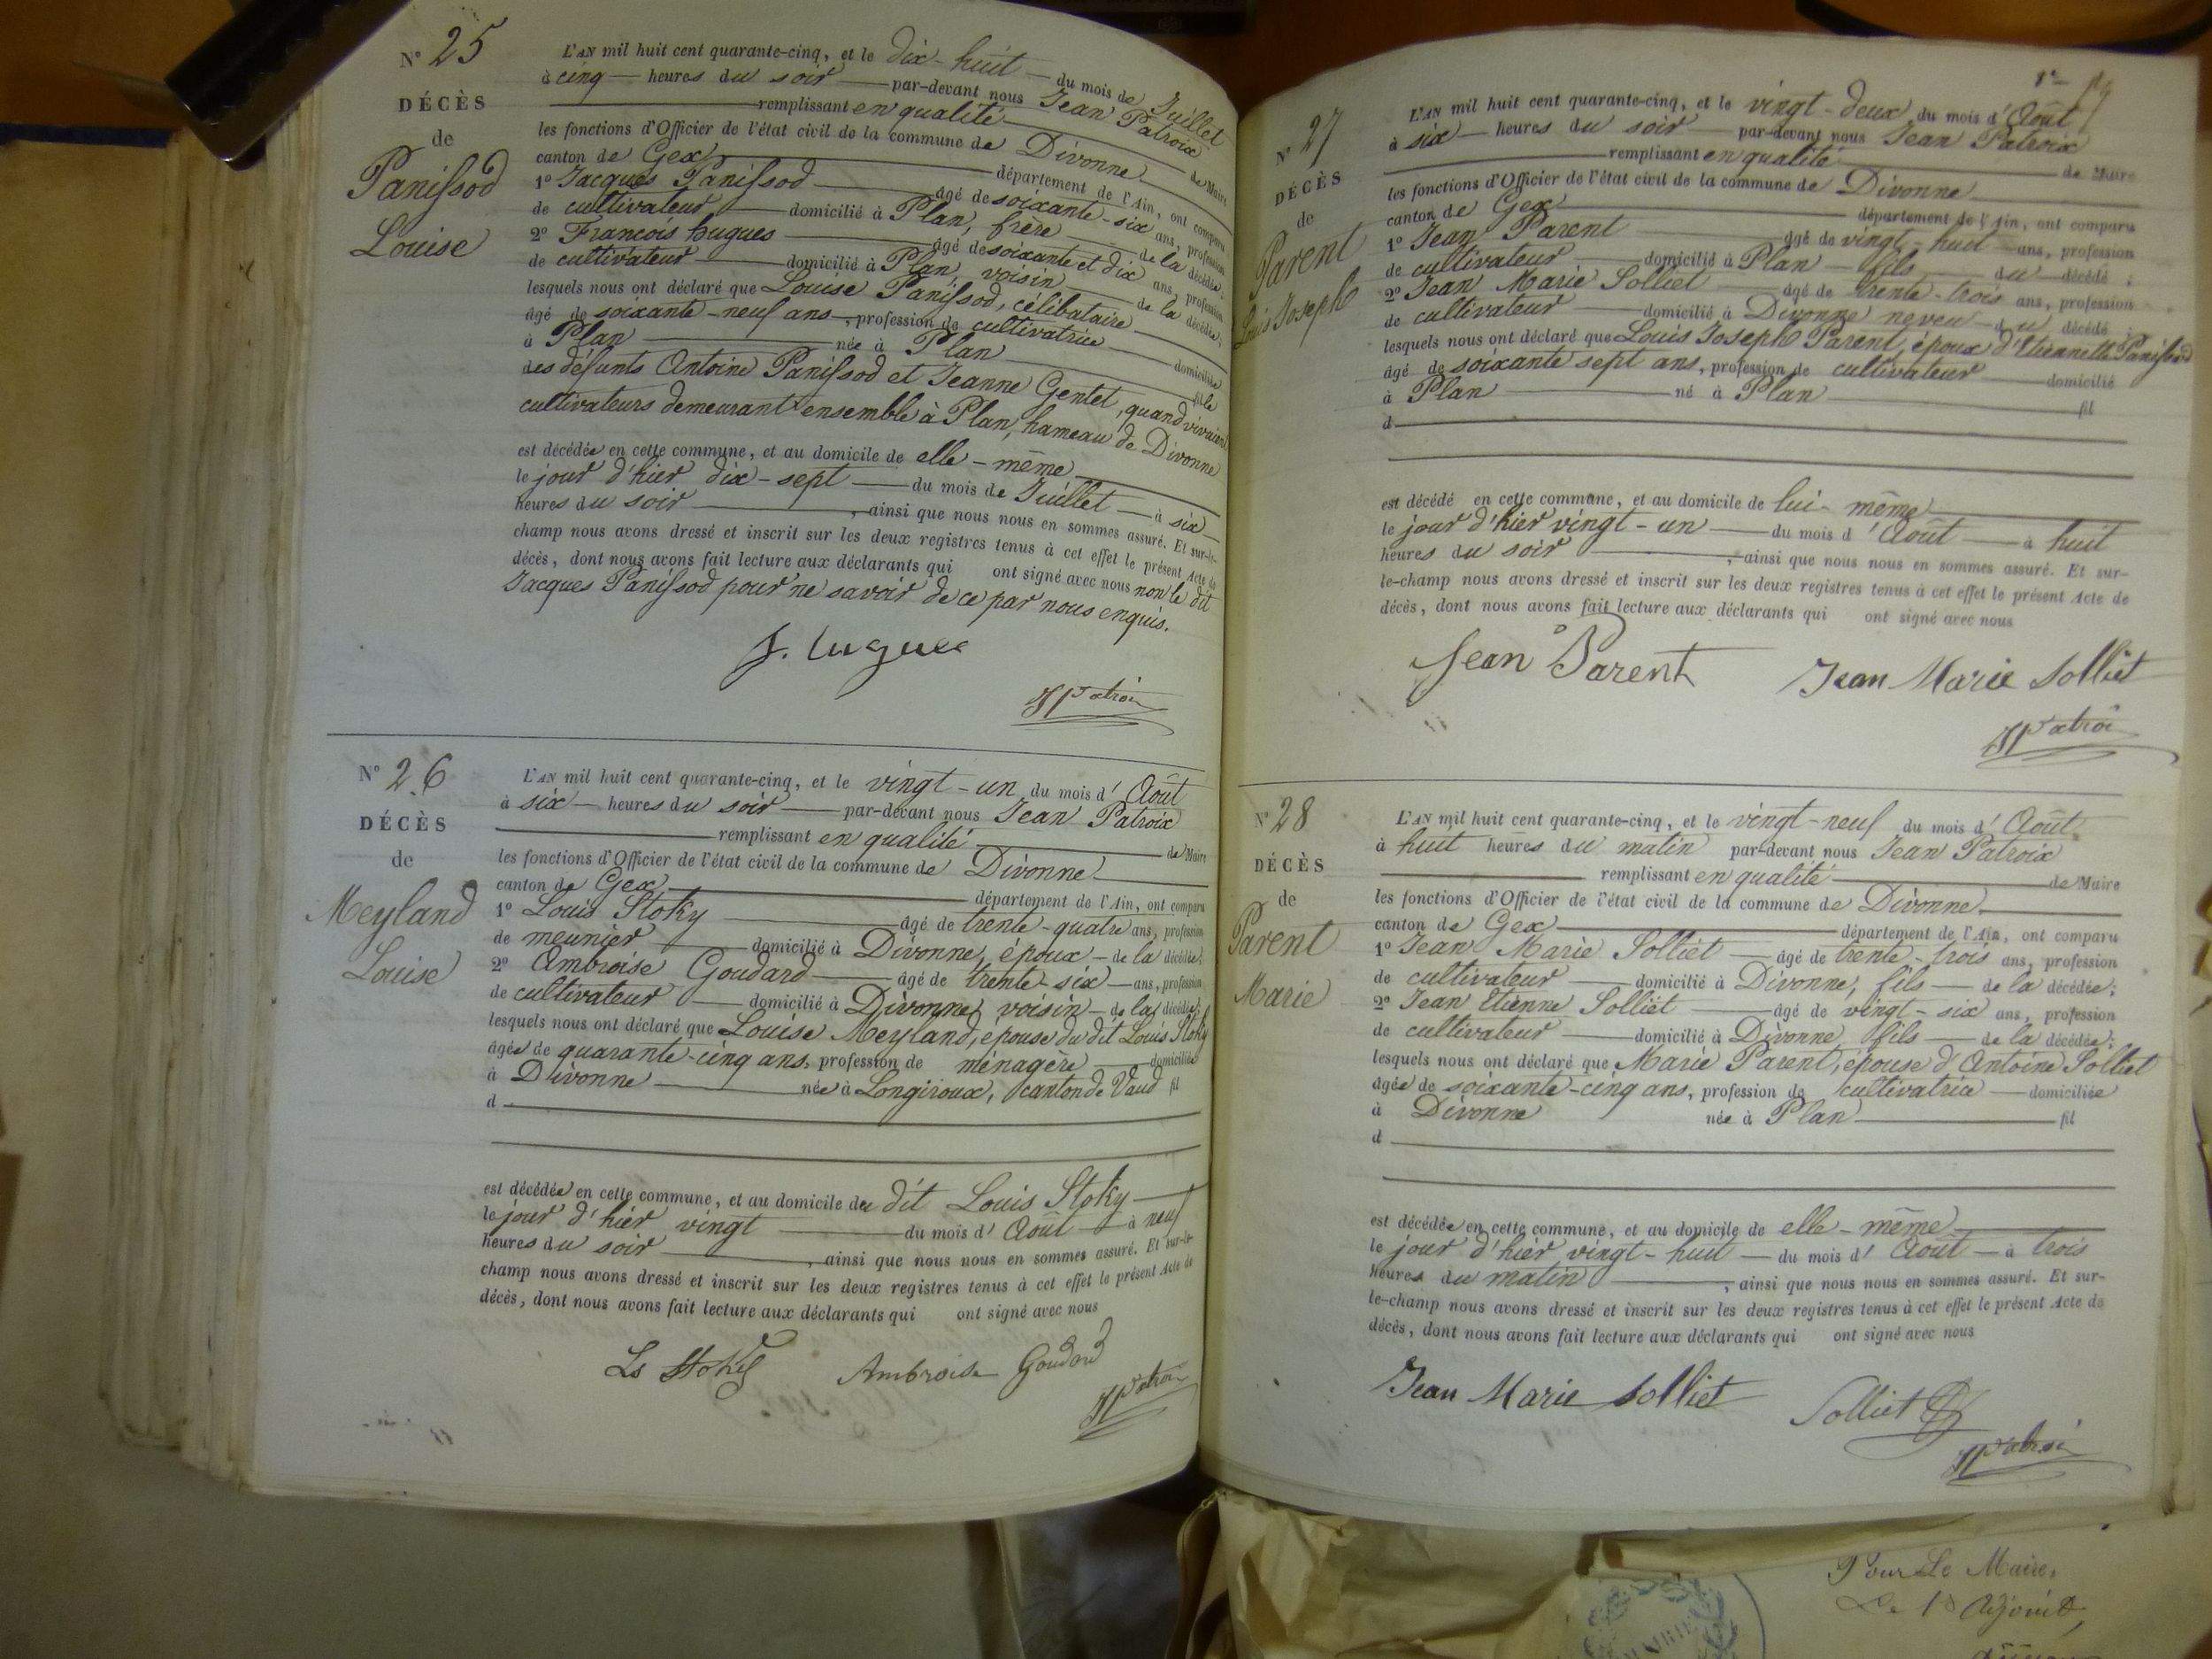 N° 25
DÉCÈS
de
Panissod
Louise
L'AN mil huit cent quarante-cinq, et le dix-huit du mois de Juillet
à cinq heures du soir par-devant nous Jean Patroix
remplissant en qualité de Maire
les fonctions d'Officier de l'état civil de la commune de Divonne
canton de Gex département de l'Ain, ont comparu
1° Jacques Panissod âgé de soixante-six ans, profession
de cultivateur domicilié à Plan, frère de la décédée;
2° François hugues âgé de soixante et dix ans, profession
de cultivateur domicilié à Plan, voisin de la décédée;
lesquels nous ont déclaré que Louise Panissod, célibataire
âgé de soixante-neuf ans, profession de cultivatrice domiciliée
à Plan née à Plan fille
des défunts Antoine Panissod et Jeanne Gentet, quand vivaient
cultivateurs demeurant ensemble à Plan, hameau de Divonne
est décédée en cette commune, et au domicile de elle-même
le jour d'hier dix-sept du mois de Juillet à six
heures du soir, ainsi que nous nous en sommes assuré. Et sur-le-
champ nous avons dressé et inscrit sur les deux registres tenus à cet effet le présent Acte de
décès, dont nous avons fait lecture aux déclarants qui ont signé avec nous non le dit
Jacques Panissod pour ne savoir de ce par nous enquis.
f. hugues
N° 26
DÉCÈS
de
Meyland
Louise
L'AN mil huit cent quarante-cinq, et le vingt-un du mois d'Août
à six heures du soir par-devant nous Jean Patroix
remplissant en qualité de Maire
les fonctions d'Officier de l'état civil de la commune de Divonne
canton de Gex département de l'Ain, ont comparu
1° Louis Stoky âgé de trente-quatre ans, profession
de meunier domicilié à Divonne, époux de la décédée;
2° Ambroise Goudard âgé de trente-six ans, profession
de cultivateur domicilié à Divonne, voisin de la décédée;
lesquels nous ont déclaré que Louise Meyland, épouse du dit Louis Stoky
âgée de quarante-cinq ans, profession de ménagère domiciliée
à Divonne née à Longiroux, canton de Vaud fil
d
est décédée en cette commune, et au domicile du dit Louis Stoky
le jour d'hier vingt du mois d'Août à neuf
heures du soir, ainsi que nous nous en sommes assuré. Et sur-le-
champ nous avons dressé et inscrit sur les deux registres tenus à cet effet le présent Acte de
décès, dont nous avons fait lecture aux déclarants qui ont signé avec nous
Ls Stoky Ambroise Goudard
N° 27
DÉCÈS
de
Parent
Louis Joseph
L'AN mil huit cent quarante-cinq, et le vingt-deux du mois d'Août
à six heures du soir par-devant nous Jean Patroix
remplissant en qualité de Maire
les fonctions d'Officier de l'état civil de la commune de Divonne
canton de Gex département de l'Ain, ont comparu
1° Jean Parent âgé de vingt-huit ans, profession
de cultivateur domicilié à Plan fils du décédé;
2° Jean Marie Solliet âgé de trente-trois ans, profession
de cultivateur domicilié à Divonne neveu du décédé;
lesquels nous ont déclaré que Louis Joseph Parent, époux d'Etiennette Panissod
âgé de soixante sept ans, profession de cultivateur domicilié
à Plan né à Plan fil
d
est décédé en cette commune, et au domicile de lui-même
le jour d'hier vingt-un du mois d'Août à huit
heures du soir, ainsi que nous nous en sommes assuré. Et sur-
le-champ nous avons dressé et inscrit sur les deux registres tenus à cet effet le présent Acte de
décès, dont nous avons fait lecture aux déclarants qui ont signé avec nous
Jean Parent Jean Marie Solliet
N° 28
DÉCÈS
de
Parent
Marie
L'AN mil huit cent quarante-cinq, et le vingt-neuf du mois d'Août
à huit heures du matin par-devant nous Jean Patroix
remplissant en qualité de Maire
les fonctions d'Officier de l'état civil de la commune de Divonne
canton de Gex département de l'Ain, ont comparu
1° Jean Marie Solliet âgé de trente-trois ans, profession
de cultivateur domicilié à Divonne, fils de la décédée;
2° Jean Etienne Solliet âgé de vingt-six ans, profession
de cultivateur domicilié à Divonne, fils de la décédée;
lesquels nous ont déclaré que Marie Parent, épouse d'Antoine Solliet
âgée de soixante-cinq ans, profession de cultivatrice domiciliée
à Divonne née à Plan fil
d
est décédée en cette commune, et au domicile de elle-même
le jour d'hier vingt-huit du mois d'Août à trois
heures du matin, ainsi que nous nous en sommes assuré. Et sur-
le-champ nous avons dressé et inscrit sur les deux registres tenus à cet effet le présent Acte de
décès, dont nous avons fait lecture aux déclarants qui ont signé avec nous
Jean Marie Solliet Solliet
Pour Le Maire,
Le 1er Adjoint,